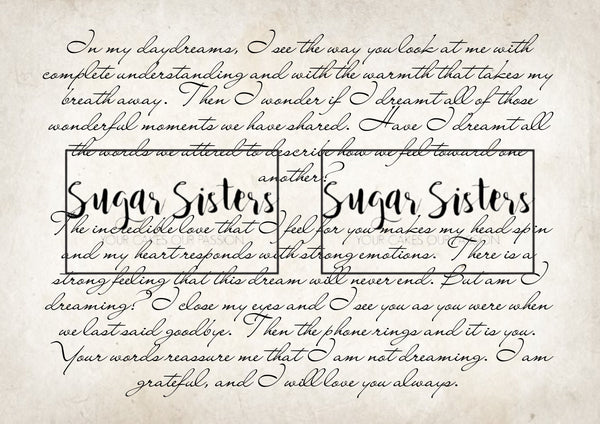 In my daydreams, I see the way you look at me with
complete understanding and with the warmth that takes my
breath away. Then I wonder if I dreamt all of those
wonderful moments we have shared. Have I dreamt all
the words we uttered to describe how we feel toward one
another?
Sugar Sisters Sugar Sisters
The incredible love that I feel for you makes my head spin
YOUR CAKES OUR PASSION YOUR CAKES OUR PASSION
and my heart responds with strong emotions. There is a
strong feeling that this dream will never end. But am I
dreaming? I close my eyes and I see you as you were when
we last said goodbye. Then the phone rings and it is you.
Your words reassure me that I am not dreaming. I am
grateful, and I will love you always.